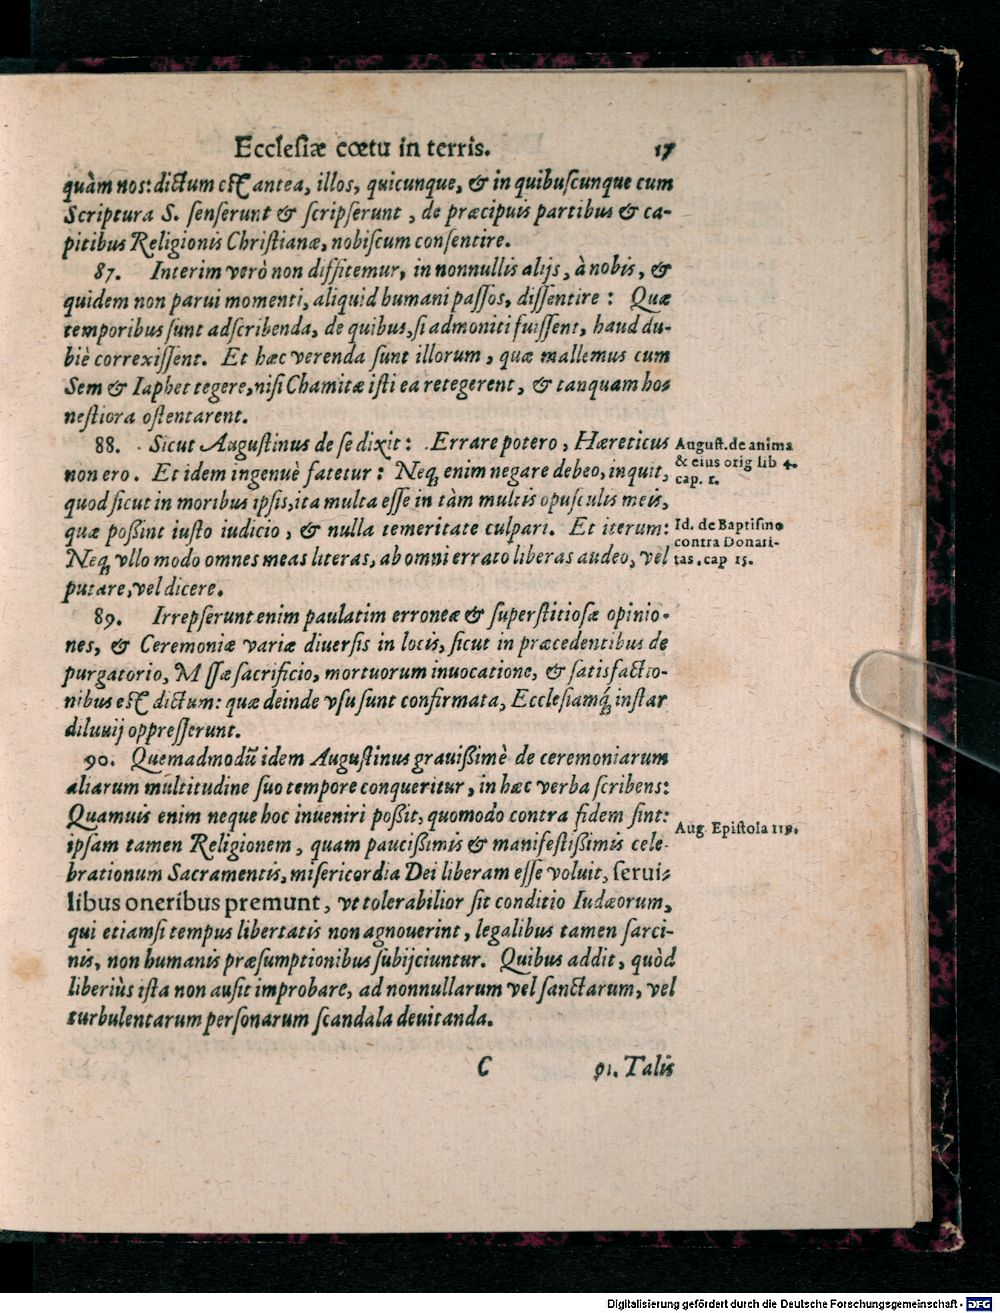 Ecclesiæ cœtu in terris. 17
quàm nos: dictum est antea, illos, quicunque, & in quibuscunque cum
Scriptura S. senserunt & scripserunt, de præcipuis partibus & ca-
pitibus Religionis Christianæ, nobiscum consentire.
87. Interim verò non diffitemur, in nonnullis alijs, à nobis, &
quidem non parui momenti, aliquid humani passos, dissentire: Quæ
temporibus sunt adscribenda, de quibus, si admoniti fuissent, haud du-
biè correxissent. Et hæc verenda sunt illorum, quæ mallemus cum
Sem & Iaphet tegere, nisi Chamitæ isti ea retegerent, & tanquam ho-
nestiora ostentarent.
88. Sicut Augustinus de se dixit: Errare potero, Hæreticus
non ero. Et idem ingenuè fatetur: Neq; enim negare debeo, inquit,
quod sicut in moribus ipsis, ita multa esse in tàm multis opusculis meis,
quæ poßint iusto iudicio, & nulla temeritate culpari. Et iterum:
Neq; vllo modo omnes meas literas, ab omni errato liberas audeo, vel
putare, vel dicere.
August. de anima
& eius orig lib 4.
cap. 1.
Id. de Baptismo
contra Donati-
tas. cap 15.
89. Irrepserunt enim paulatim erroneæ & superstitiosæ opinio-
nes, & Ceremoniæ variæ diuersis in locis, sicut in præcedentibus de
purgatorio, M ssæ sacrificio, mortuorum inuocatione, & satisfactio-
nibus est dictum: quæ deinde vsu sunt confirmata, Ecclesiamq́; instar
diluuij oppresserunt.
90. Quemadmodũ idem Augustinus grauißimè de ceremoniarum
aliarum multitudine suo tempore conqueritur, in hæc verba scribens:
Quamuis enim neque hoc inueniri poßit, quomodo contra fidem sint:
ipsam tamen Religionem, quam paucißimis & manifestißimis cele-
brationum Sacramentis, misericordia Dei liberam esse voluit, serui-
libus oneribus premunt, vt tolerabilior sit conditio Iudæorum,
qui etiamsi tempus libertatis non agnouerint, legalibus tamen sarci-
nis, non humanis præsumptionibus subijciuntur. Quibus addit, quòd
liberiùs ista non ausit improbare, ad nonnullarum vel sanctarum, vel
turbulentarum personarum scandala deuitanda.
Aug. Epistola 119.
C 91. Talis
Digitalisierung gefördert durch die Deutsche Forschungsgemeinschaft - DFG